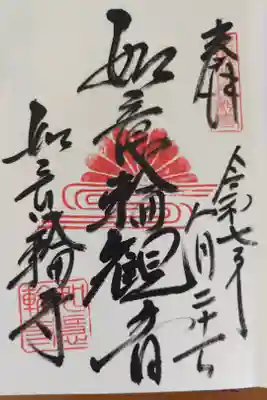 奉拝
令和七年
八月二十七日
如意輪観音
如意輪寺
如意
輪寺